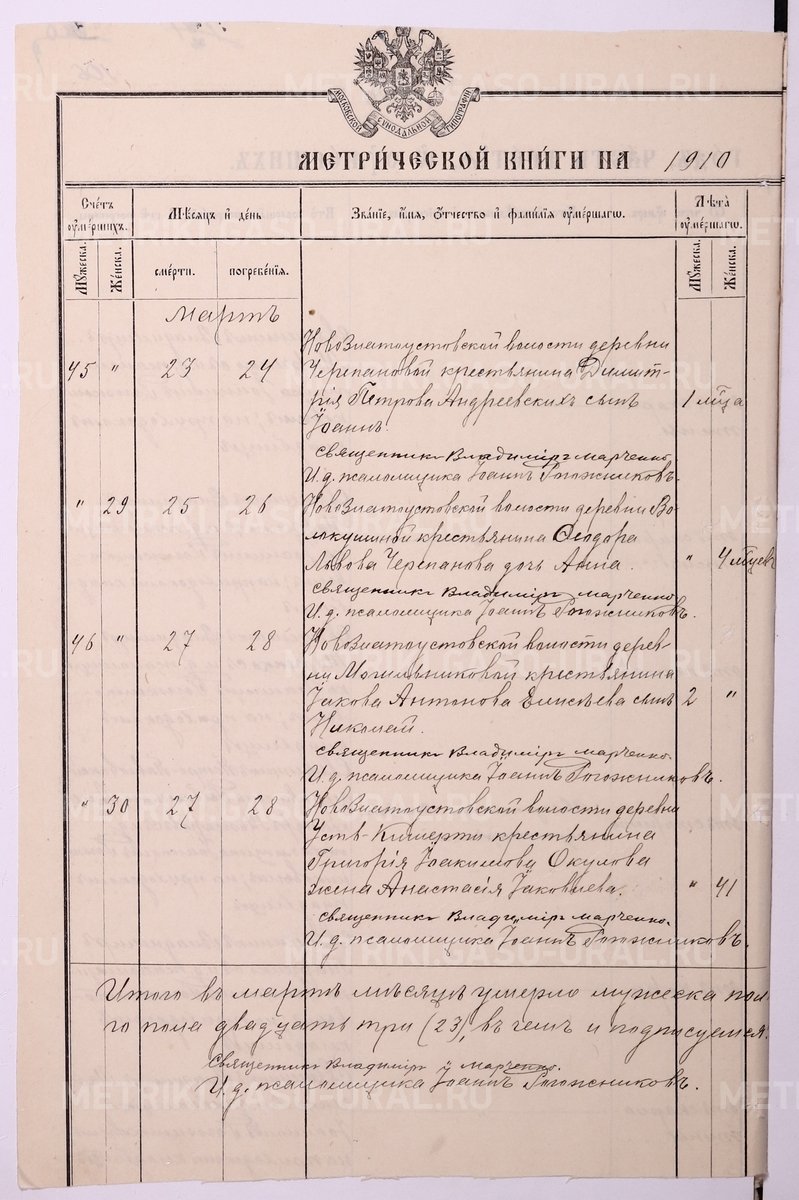 МОСКОВСКОЙ СѴНОДАЛЬНОЙ ТИПОГРАФІИ
МЕТРИ́ЧЕСКОЙ КНИ́ГИ НА 1910
Сче́тъ ᲂу҆ме́ршихъ.
Мѣ́сяцъ и҆ де́нь
Зва́нїе, и҆́мѧ, ѻ҆́тчество и҆ фами́лїѧ ᲂу҆ме́ршагѡ.
Лѣ́та ᲂу҆ме́ршагѡ.
Мꙋ́жеска.
Же́нска.
сме́рти.
погребе́нїѧ.
Мꙋ́жеска.
Же́нска.
Мартъ
Новозлатоустовской волости деревни
45 " 23 24 Черепановой крестьянина Димит-
рія Петрова Андреевскихъ сынъ 1 мца
Іоаннъ.
Священникъ Владиміръ Марченко.
И. д. псаломщика Іоаннъ Рогожниковъ.
" 29 25 26 Новозлатоустовской волости деревни Во-
локушиной крестьянина Ѳеодора
Львова Черепанова дочь Анна. " 4 мцевъ
Священникъ Владиміръ Марченко.
И. д. псаломщика Іоаннъ Рогожниковъ.
46 " 27 28 Новозлатоустовской волости дерев-
ни Могильниковой крестьянина
Іакова Антонова Елисѣева сынъ 2 "
Николай.
Священникъ Владиміръ Марченко.
И. д. псаломщика Іоаннъ Рогожниковъ.
" 30 27 28 Новозлатоустовской волости деревни
Усть-Кишерти крестьянина
Григорія Іоакимова Окулова
жена Анастасія Іаковлева. " 41
Священникъ Владиміръ Марченко.
И. д. псаломщика Іоаннъ Рогожниковъ.
Итого въ мартѣ мѣсяцѣ умерло мужеска
го пола двадцать три (23), въ чемъ и подписуемся.
Священникъ Владиміръ Марченко.
И. д. псаломщика Іоаннъ Рогожниковъ.
METRIKI.GASO-URAL.RU